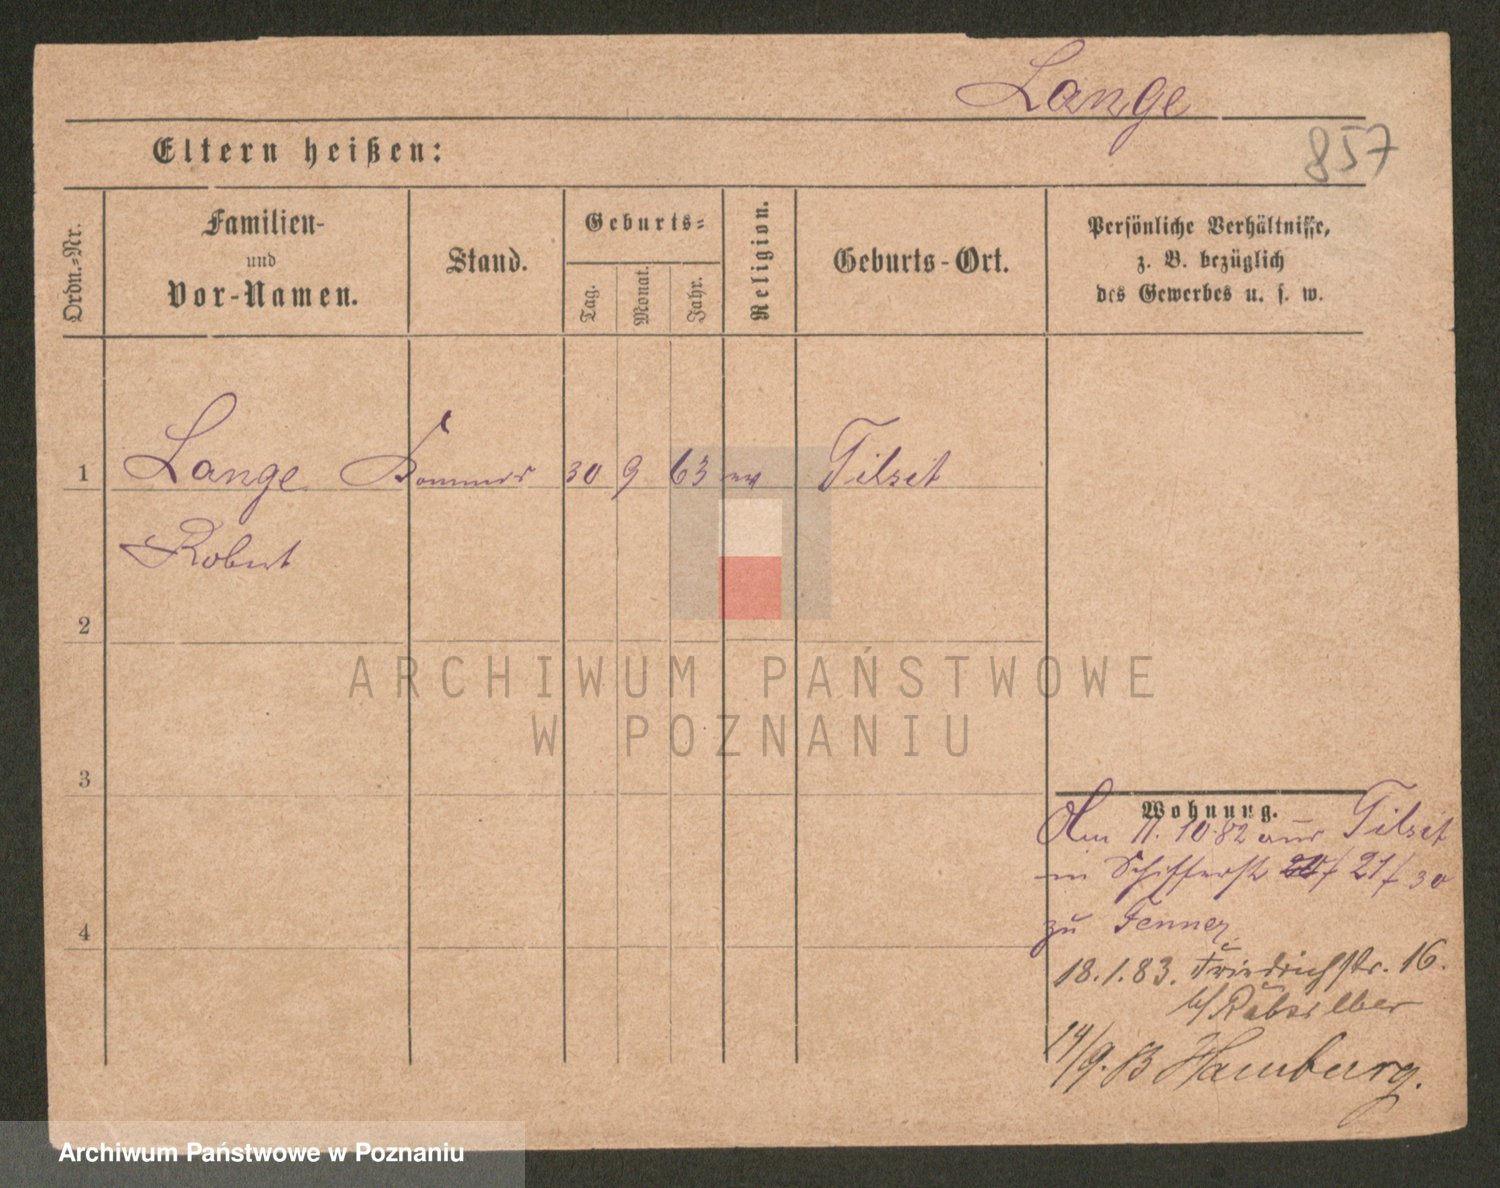 Lange
857
Eltern heißen:
Ordn.-Nr.
Familien-
und
Vor-Namen.
Stand.
Geburts-
Tag.
Monat.
Jahr.
Religion.
Geburts-Ort.
Persönliche Verhältnisse,
z. B. bezüglich
des Gewerbes u. s. w.
1 Lange 30 9 63 ev Tilsit
Robert
2
3
4
ARCHIWUM PAŃSTWOWE
W POZNANIU
Wohnung.
Am 11.10.82 aus Tilsit
in Schifferst 21/30
zu Fenner
18.1.83. Friedrichstr. 16.
b/
14/9. 83 Hamburg.
Archiwum Państwowe w Poznaniu